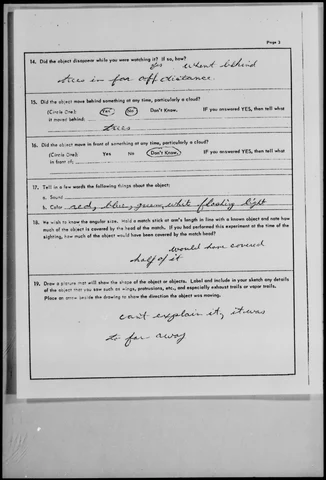 Page 2
14. Did the object disappear while you were watching it? If so, how?
yes whent behind
trees in far off distance.
15. Did the object move behind something at any time, particularly a cloud?
(Circle One): Yes No Don't Know. IF you answered YES, then tell what
it moved behind:
trees
16. Did the object move in front of something at any time, particularly a cloud?
(Circle One): Yes No Don't Know. IF you answered YES, then tell what
in front of:
17. Tell in a few words the following things about the object:
a. Sound
b. Color red, blue, green, white flashing light
18. We wish to know the angular size. Hold a match stick at arm's length in line with a known object and note how
much of the object is covered by the head of the match. If you had performed this experiment at the time of the
sighting, how much of the object would have been covered by the match head?
would have covered
half of it
19. Draw a picture that will show the shape of the object or objects. Label and include in your sketch any details
of the object that you saw such as wings, protrusions, etc., and especially exhaust trails or vapor trails.
Place an arrow beside the drawing to show the direction the object was moving.
can't explain it, it was
to far away